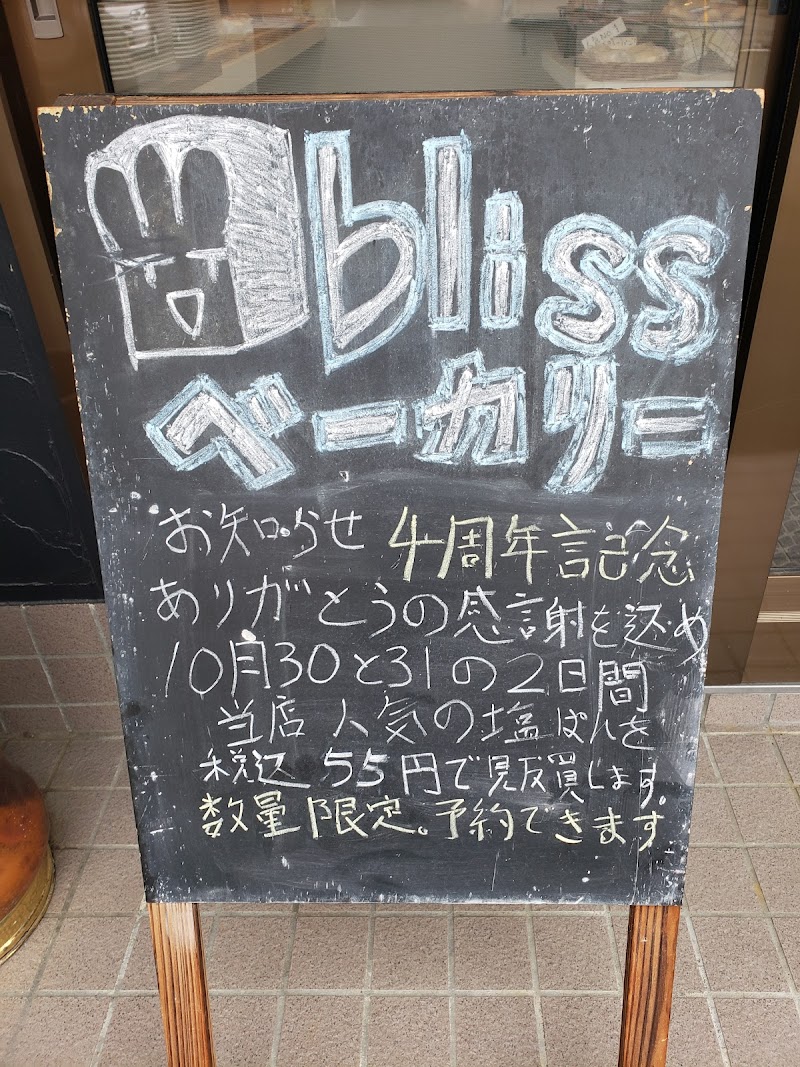 bliss
ベーカリー
お知らせ 4周年記念
ありがとうの感謝を込め
10月30と31の2日間
当店人気の塩ぱんを
税込55円で販買します。
数量限定。予約できます